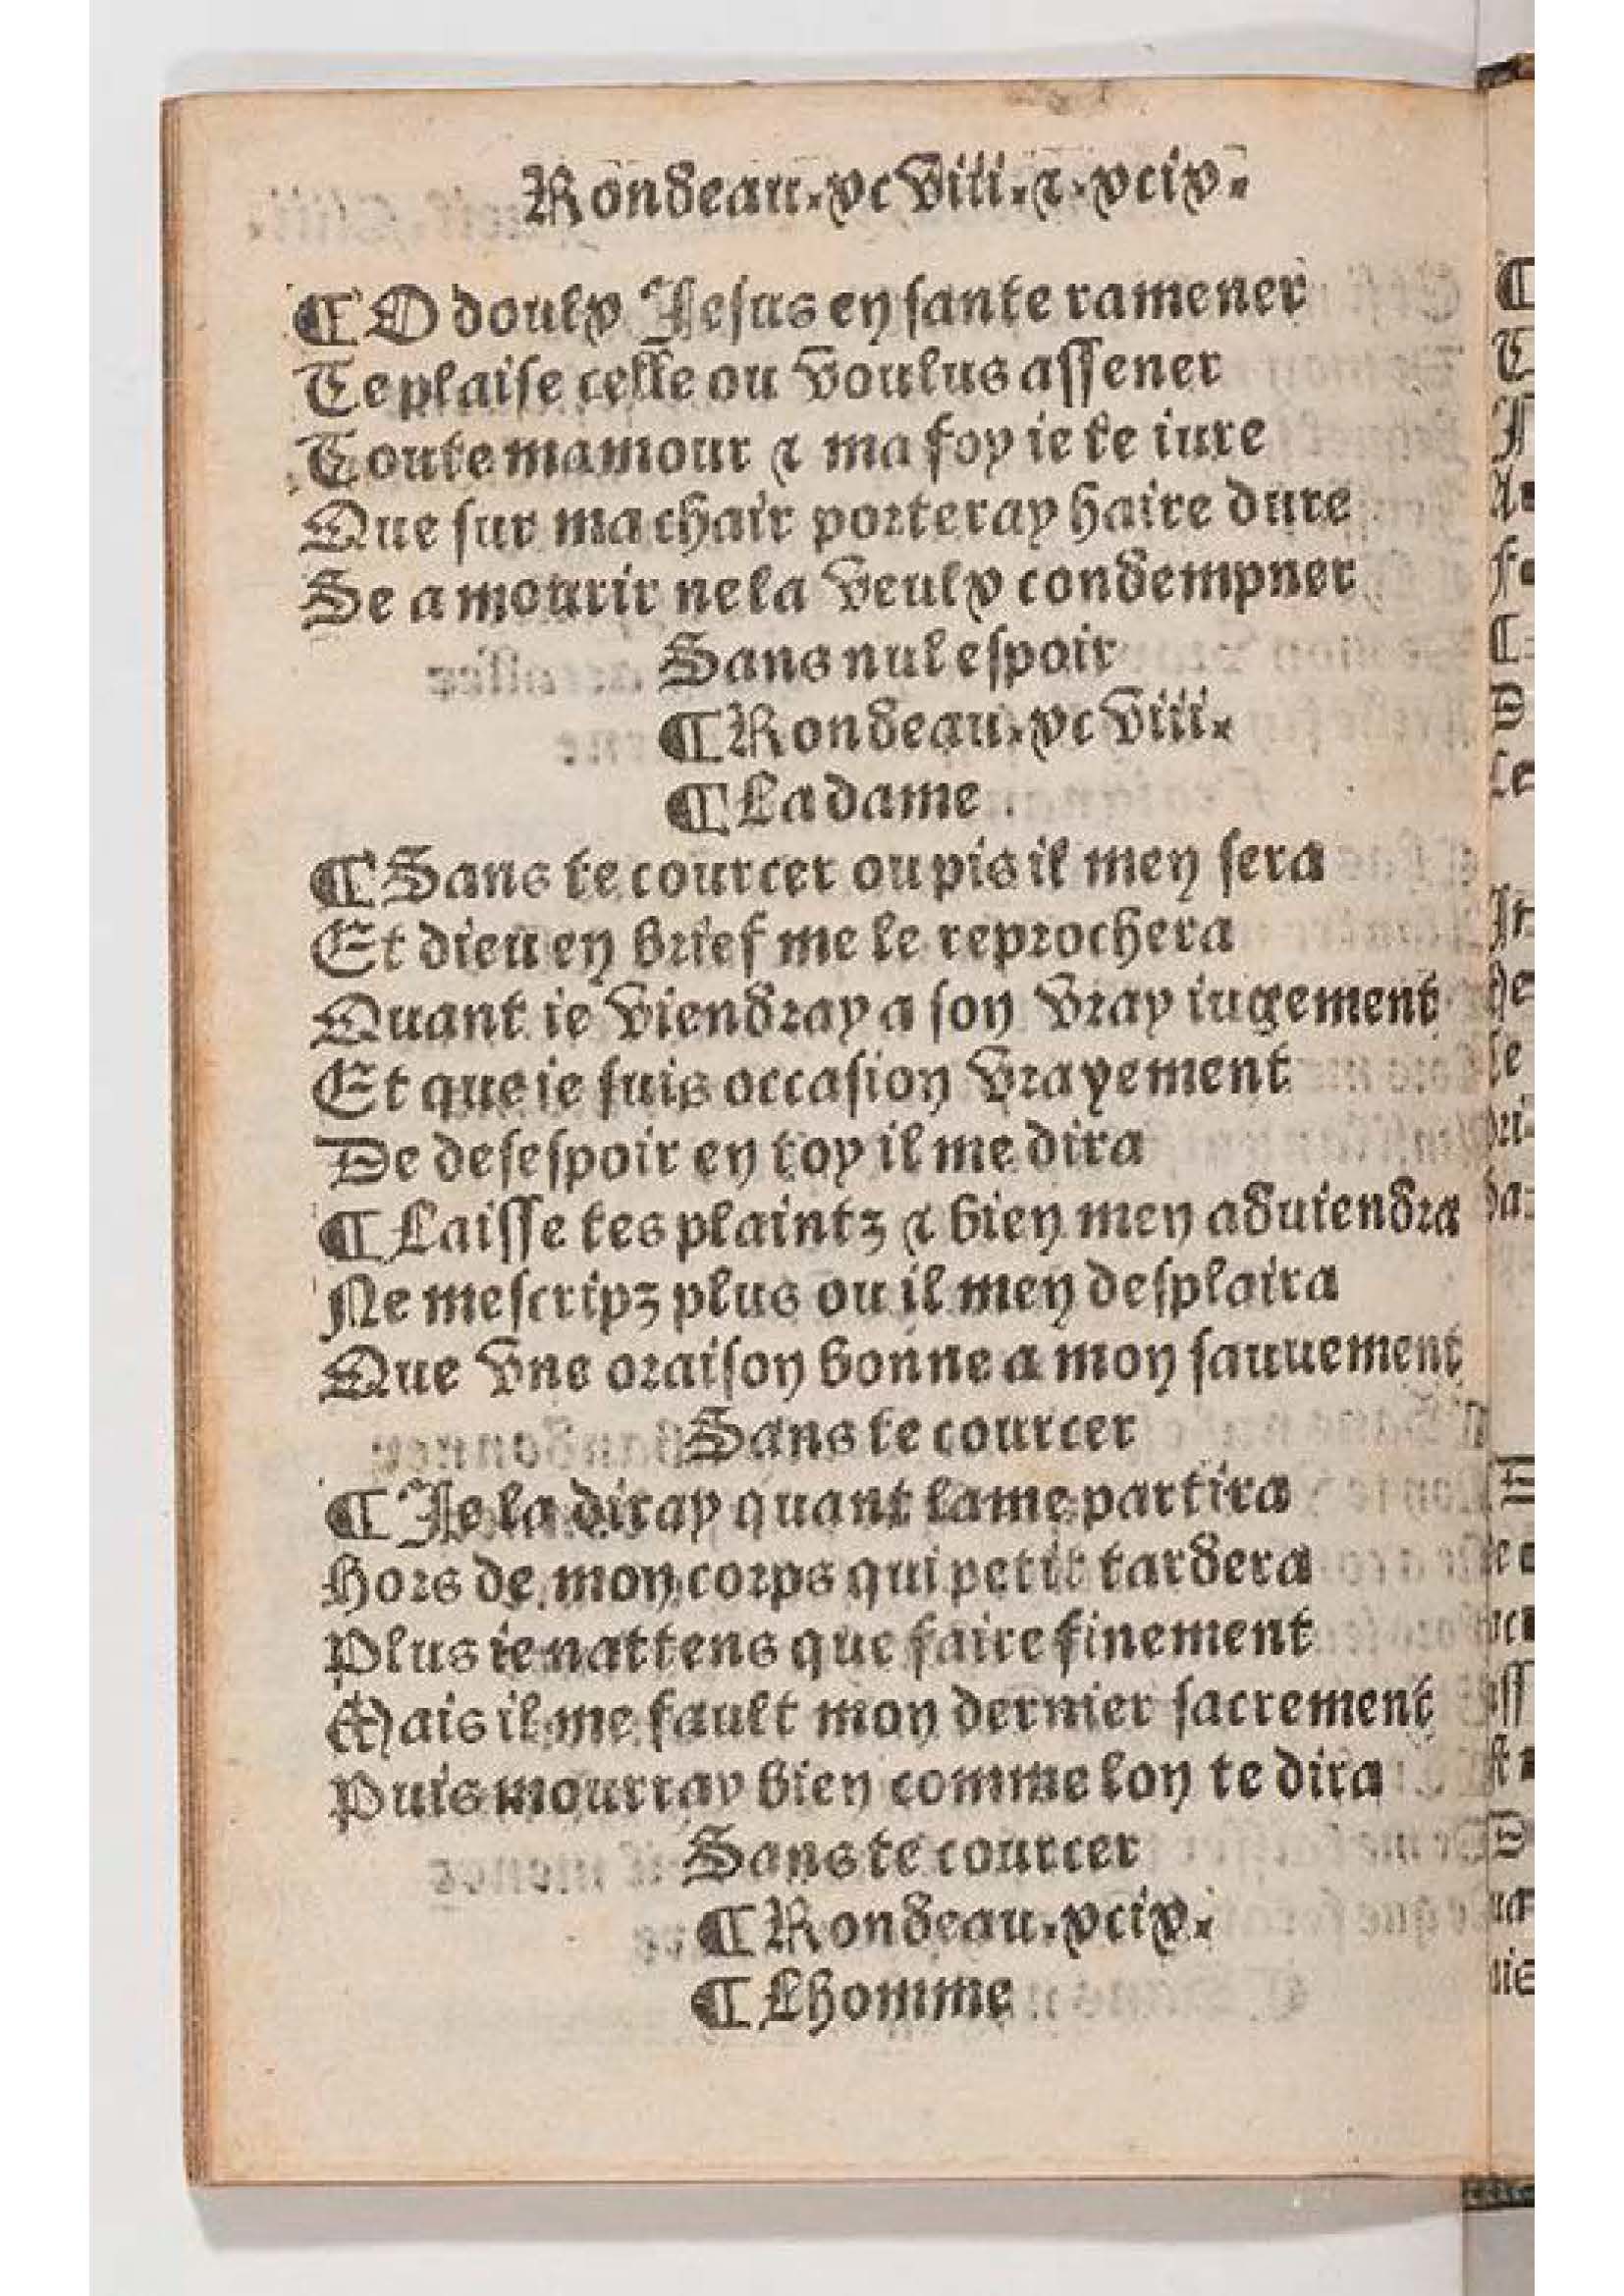 Rondeau.xcviii.⁊.xcix.
¶O doulx Jesus en sante ramener
Te plaise celle ou voulus assener
Toute mamour ⁊ ma foy ie te iure
Que sur ma chair porteray haire dure
Se a mourir ne la veulx condempner
Sans nul espoir
¶Rondeau.xcviii.
¶La dame
¶Sans te courcer ou pis il men sera
Et dieu en brief me le reprochera
Quant ie viendray a son vray iugement
Et que ie suis occasion vrayement
De desespoir en toy il me dira
¶Laisse tes plaintz ⁊ bien men aduiendra
Ne mescripz plus ou il men desplaira
Que vne oraison bonne a mon sauuement
Sans te courcer
¶Je la diray quant lame partira
Hors de mon corps qui petit tardera
Plus ie nattens que faire finement
Mais il me fault mon dernier sacrement
Puis mourray bien comme lon te dira
Sans te courcer
¶Rondeau.xcix.
¶Lhomme